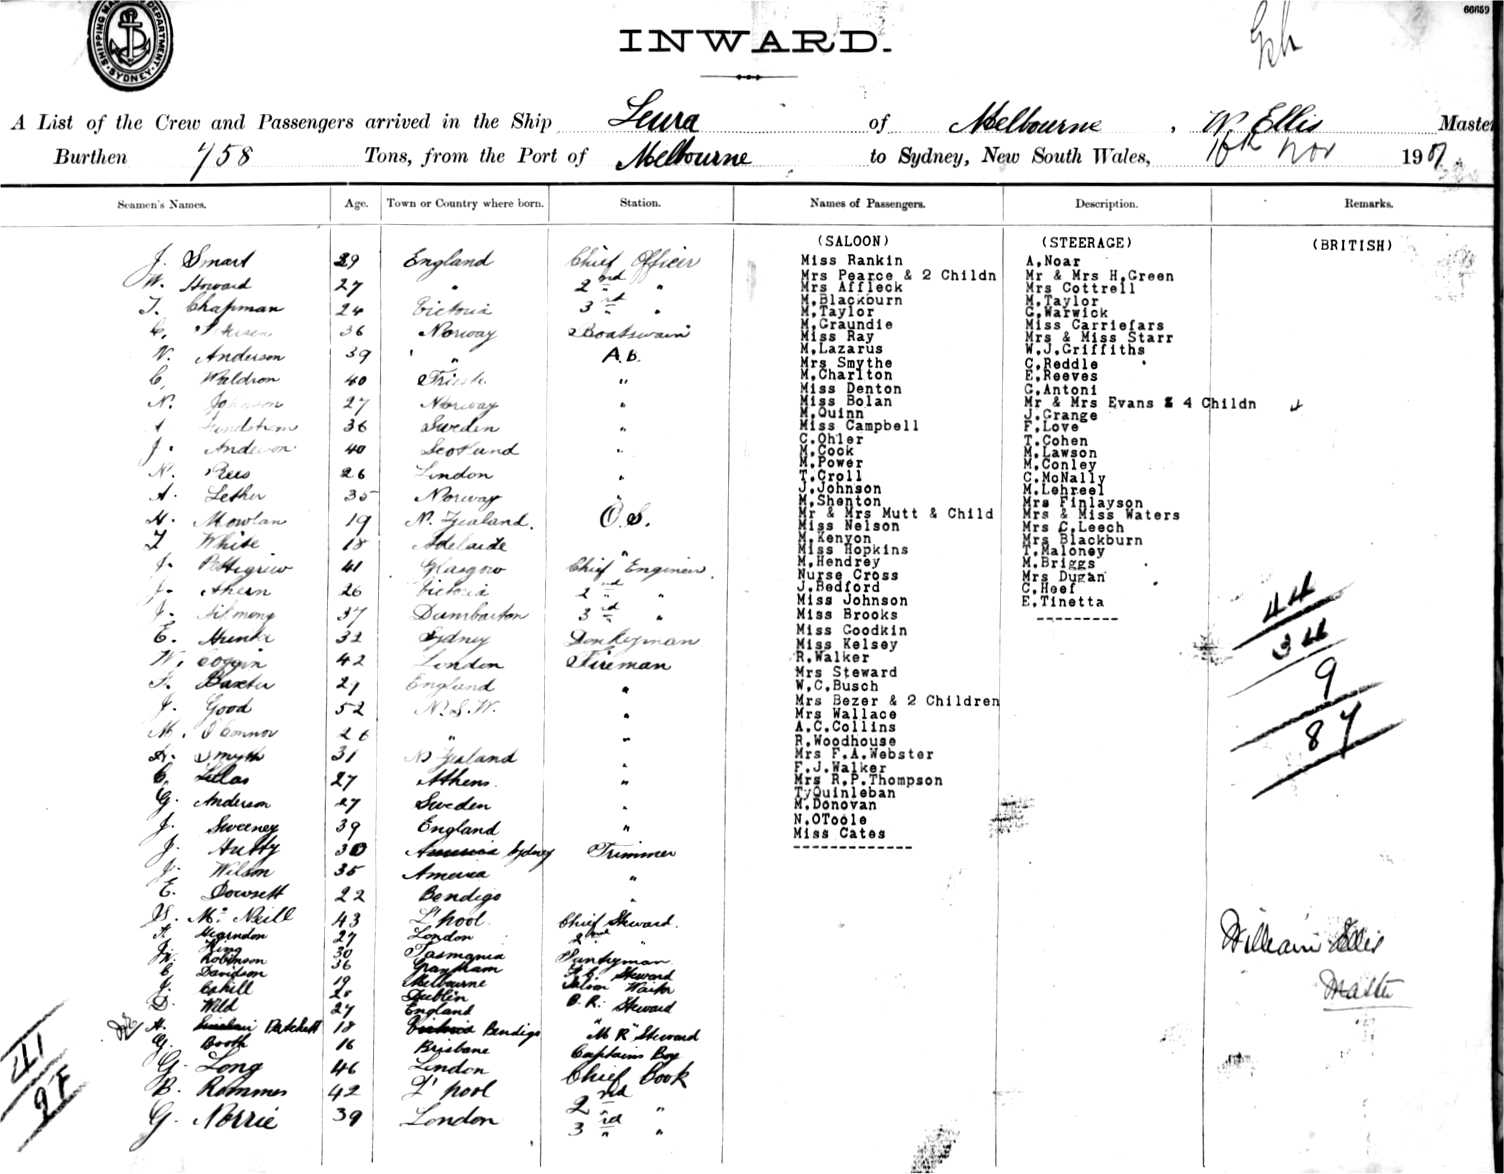 SHIPPING MA DEPARTMENT. SYDNEY.
66659
INWARD.
A List of the Crew and Passengers arrived in the Ship Leura of Melbourne, W. Ellis Maste
Burthen 758 Tons, from the Port of Melbourne to Sydney, New South Wales, 16th Nov 190
Seamen's Names. Age. Town or Country where born. Station. Names of Passengers. Description. Remarks.
J. Smart 29 England Chief Officer
W. Howard 27 " 2nd "
T. Chapman 24 Victoria 3rd "
C. 36 Norway Boatswain
N. Anderson 39 " A.B.
C. Waldron 40 "
N. 27 Norway "
36 Sweden "
J. Anderson 40 Scotland "
N. Rees 26 London "
A. Lether 35 Norway "
H. Mowlan 19 N. Zealand. O.S.
White 18 Adelaide "
J. Pettigrew 41 Glasgow Chief Engineer.
J. Ahern 26 Victoria 2nd "
J. 37 Dumbarton 3rd "
E. Hunter 32 Sydney Donkeyman
W. 42 London Fireman
Baxter 27 England "
J. Good 52 N.S.W. "
M. O'Connor 26 " "
A. Smyth 31 N Zealand "
27 Athens. "
G. Anderson 27 Sweden "
J. Sweeney 39 England "
J. Hutty 30 Sydney Trimmer
J. Wilson 35 America "
E. Dowsett 22 Bendigo "
McNeill 43 L'pool. Chief Steward.
Hearndon 27 London 2nd "
King 30 Tasmania Pantryman
Robinson 36 Grantham Steward
E Davidson 19 Melbourne Saloon Waiter
J. Cahill 28 Dublin B.R. Steward
D. Wild 27 England
H. Patchett 18 Bendigo "M R" Steward
G. Booth 16 Brisbane Captains Boy
G. Long 46 London Chief Cook
B. Rommes 42 L'pool 2nd "
G. Norrie 39 London 3rd "
41
(SALOON)
Miss Rankin
Mrs Pearce & 2 Childn
Mrs Affleck
M.Blackburn
M.Taylor
M.Graundie
Miss Ray
M.Lazarus
Mrs Smythe
M.Charlton
Miss Denton
Miss Bolan
M.Quinn
Miss Campbell
C.Ohler
M.Cook
M.Power
T.Croll
J.Johnson
M.Shenton
Mr & Mrs Mutt & Child
Miss Nelson
M.Kenyon
Miss Hopkins
M.Hendrey
Nurse Cross
J.Bedford
Miss Johnson
Miss Brooks
Miss Goodkin
Miss Kelsey
R.Walker
Mrs Steward
W.C.Busch
Mrs Bezer & 2 Children
Mrs Wallace
A.C.Collins
R.Woodhouse
Mrs F.A.Webster
F.J.Walker
Mrs R.P.Thompson
T.Quinleban
M.Donovan
N.OToole
Miss Cates
(STEERAGE)
A.Noar
Mr & Mrs H.Green
Mrs Cottrell
M.Taylor
G.Warwick
Miss Carriefars
Mrs & Miss Starr
W.J.Griffiths
C.Reddle
E.Reeves
G.Antoni
Mr & Mrs Evans & 4 Childn
J.Grange
F.Love
T.Cohen
M.Lawson
M.Conley
C.McNally
M.Lehreel
Mrs Finlayson
Mrs & Miss Waters
Mrs C.Leech
Mrs Blackburn
T.Maloney
M.Briggs
Mrs Dugan
C.Heef
E.Tinetta
(BRITISH)
44
34
9
87
William Ellis
Master